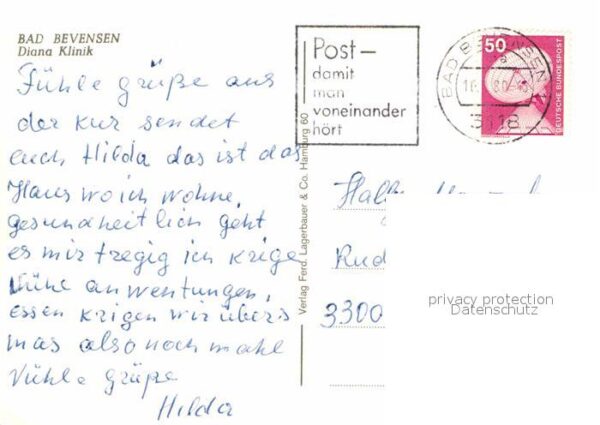 BAD BEVENSEN
Diana Klinik
Fühle grüße aus
der kur sendet
euch Hilda das ist das
Haus wo ich wohne,
gesundheitlich geht
es mir tregig ich krige
Vühle anwentungen,
essen krigen wir übers
mas also noch mahl
Vühle grüße
Hilda
Verlag Ferd. Lagerbauer & Co. Hamburg 60
Post –
damit
man
voneinander
hört
50
DEUTSCHE BUNDESPOST
BAD BEVENSEN
3118
Rud
3300
privacy protection
Datenschutz